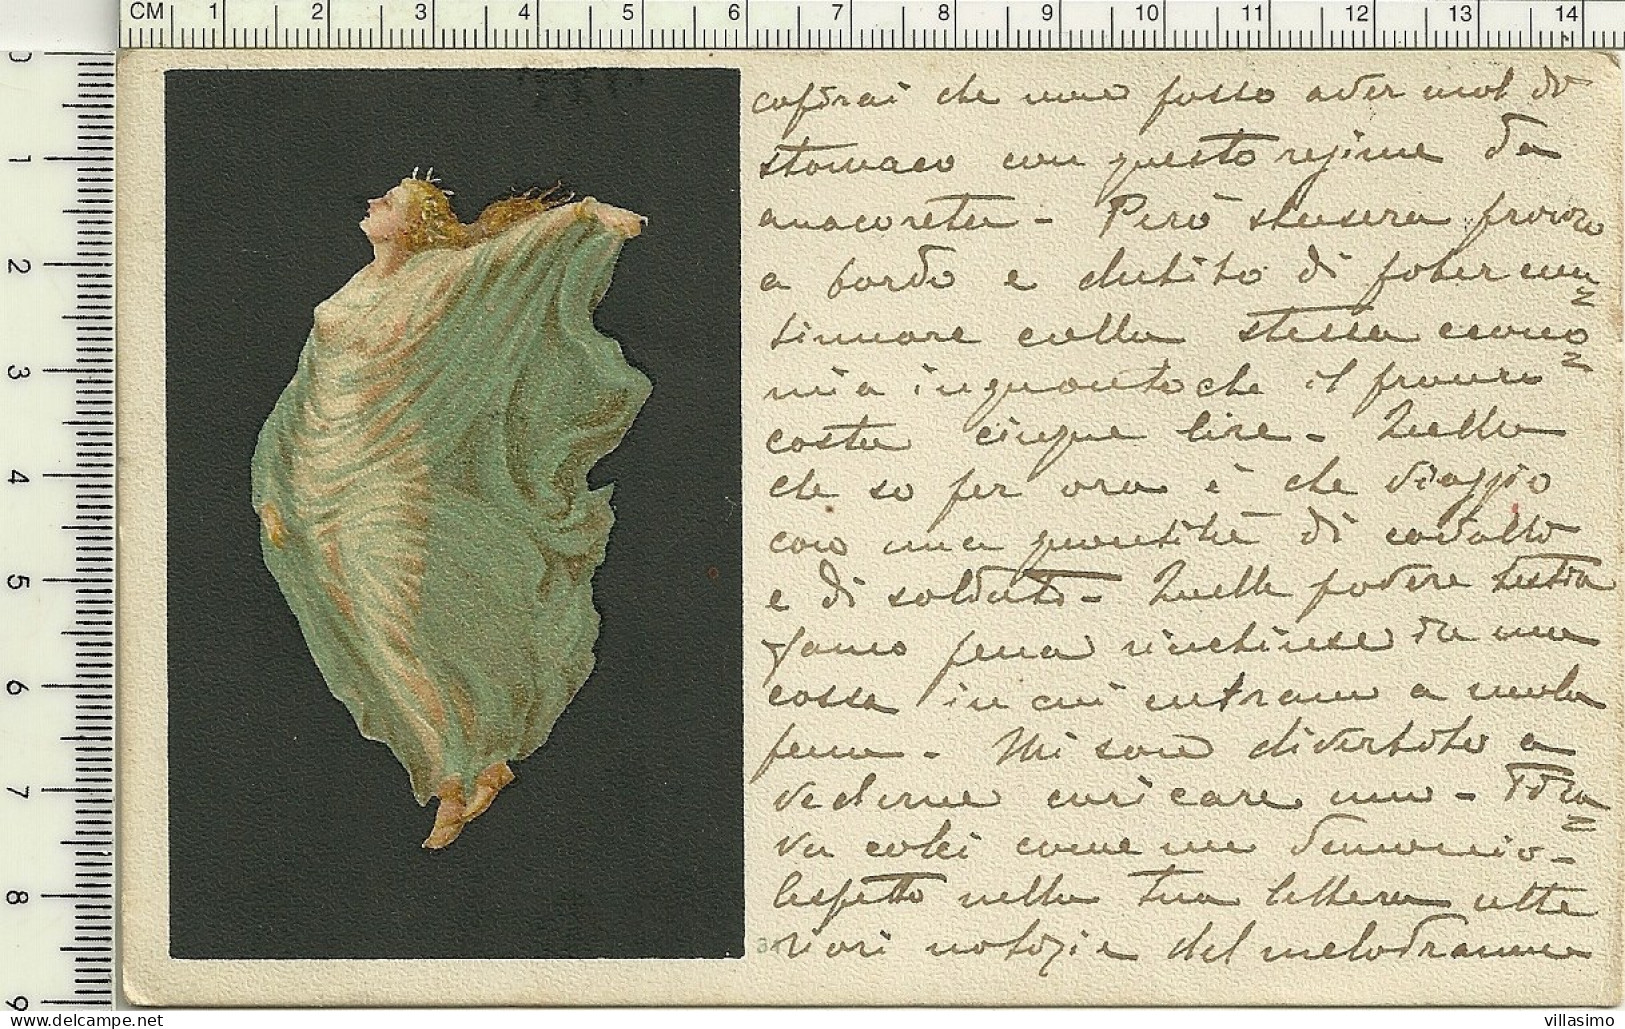 CM 1 2 3 4 5 6 7 8 9 10 11 12 13 14
0 1 2 3 4 5 6 7 8 9
capirai che non posso aver mal di
stomaco con questo regime da
anacoreta - Però stasera pranzo
a bordo e dubito di poter con=
tinuare colla stessa econo=
mia inquantoche il pranzo
costa cinque lire - Quello
che so per ora è che viaggio
con una quantità di cavalli
e di soldati - Quelle povere bestie
fanno pena rinchiuse in una
cassa in cui entrano a mala
pena - Mi sono divertito a
vederne caricare uno - Tira=
va calci come un demonio -
Aspetto nella tua lettera ulte
riori notizie del melodramma
delcampe.net
villasimo